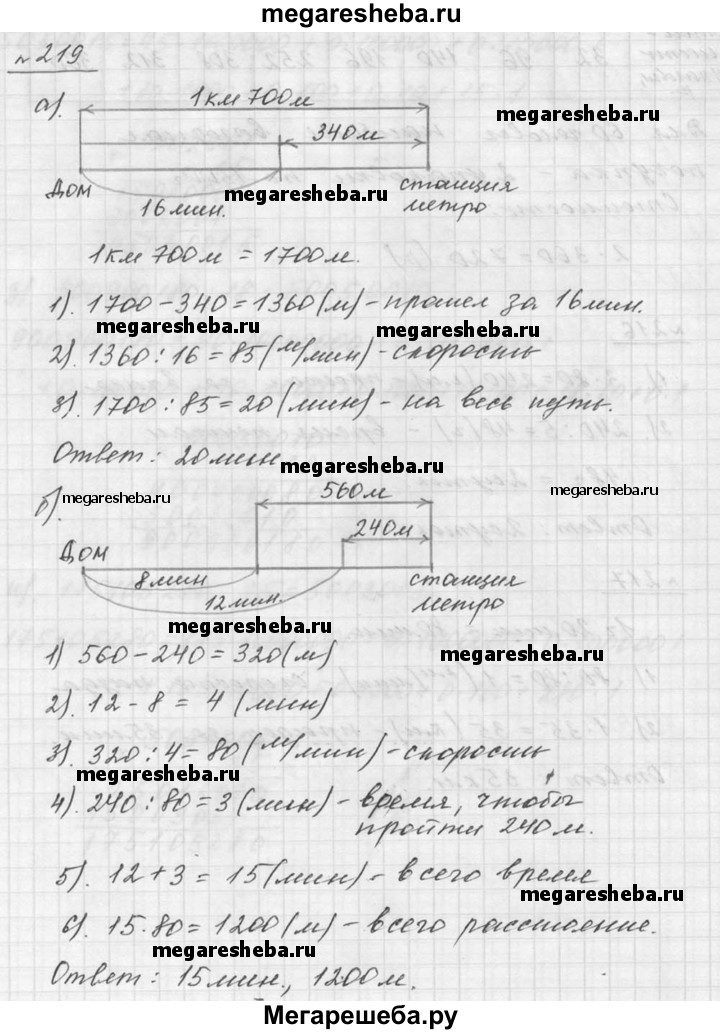 megaresheba.ru
№219
а).
1км 700м
megaresheba.ru
340м
Дом
megaresheba.ru
станция
метро
16 мин.
1км 700м = 1700м.
1). 1700 - 340 = 1360 (м) - прошел за 16 мин.
megaresheba.ru
megaresheba.ru
2). 1360 : 16 = 85 (м/мин) - скорость
3). 1700 : 85 = 20 (мин) - на весь путь.
Ответ: 20 мин
megaresheba.ru
megaresheba.ru
megaresheba.ru
б).
560м
240м
Дом
8 мин
12 мин.
станция
метро
megaresheba.ru
1) 560 - 240 = 320 (м)
megaresheba.ru
2). 12 - 8 = 4 (мин)
3). 320 : 4 = 80 (м/мин) - скорость
megaresheba.ru
4). 240 : 80 = 3 (мин) - время, чтобы
пройти 240 м.
5). 12 + 3 = 15 (мин) - всего время
megaresheba.ru
6). 15 · 80 = 1200 (м) - всего расстояние.
megaresheba.ru
Ответ: 15 мин., 1200 м.
Мегарешеба.ру